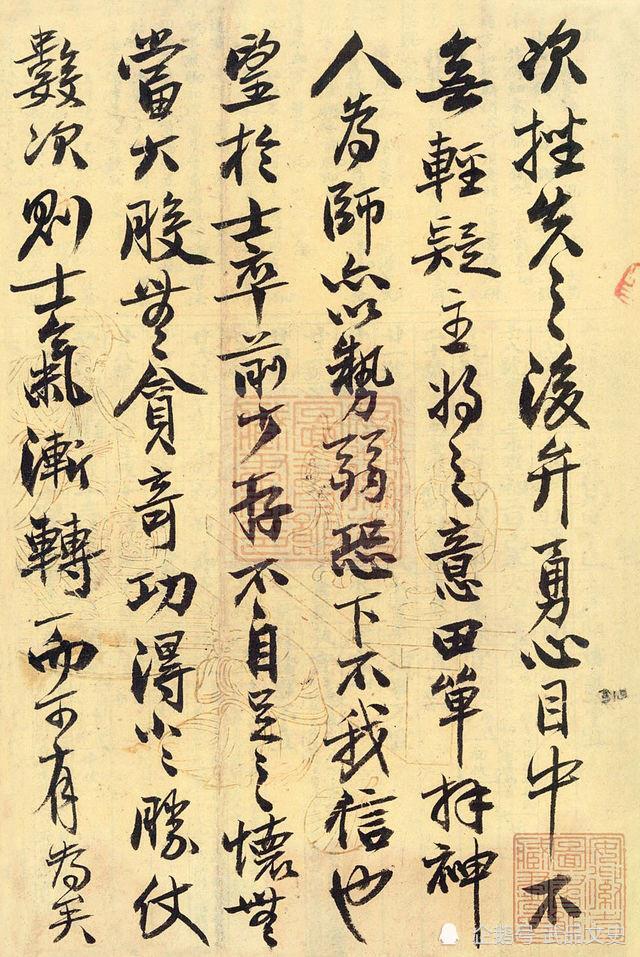 次挫失之後弁勇心目中不
無輕疑主將之意田單拜神
人為師亦以勢弱恐下不我信也
望於士卒前少存不自足之懷無
當大股無貪奇功得小小勝仗
數次則士氣漸轉而可有為矣
企鹅号 武品文史